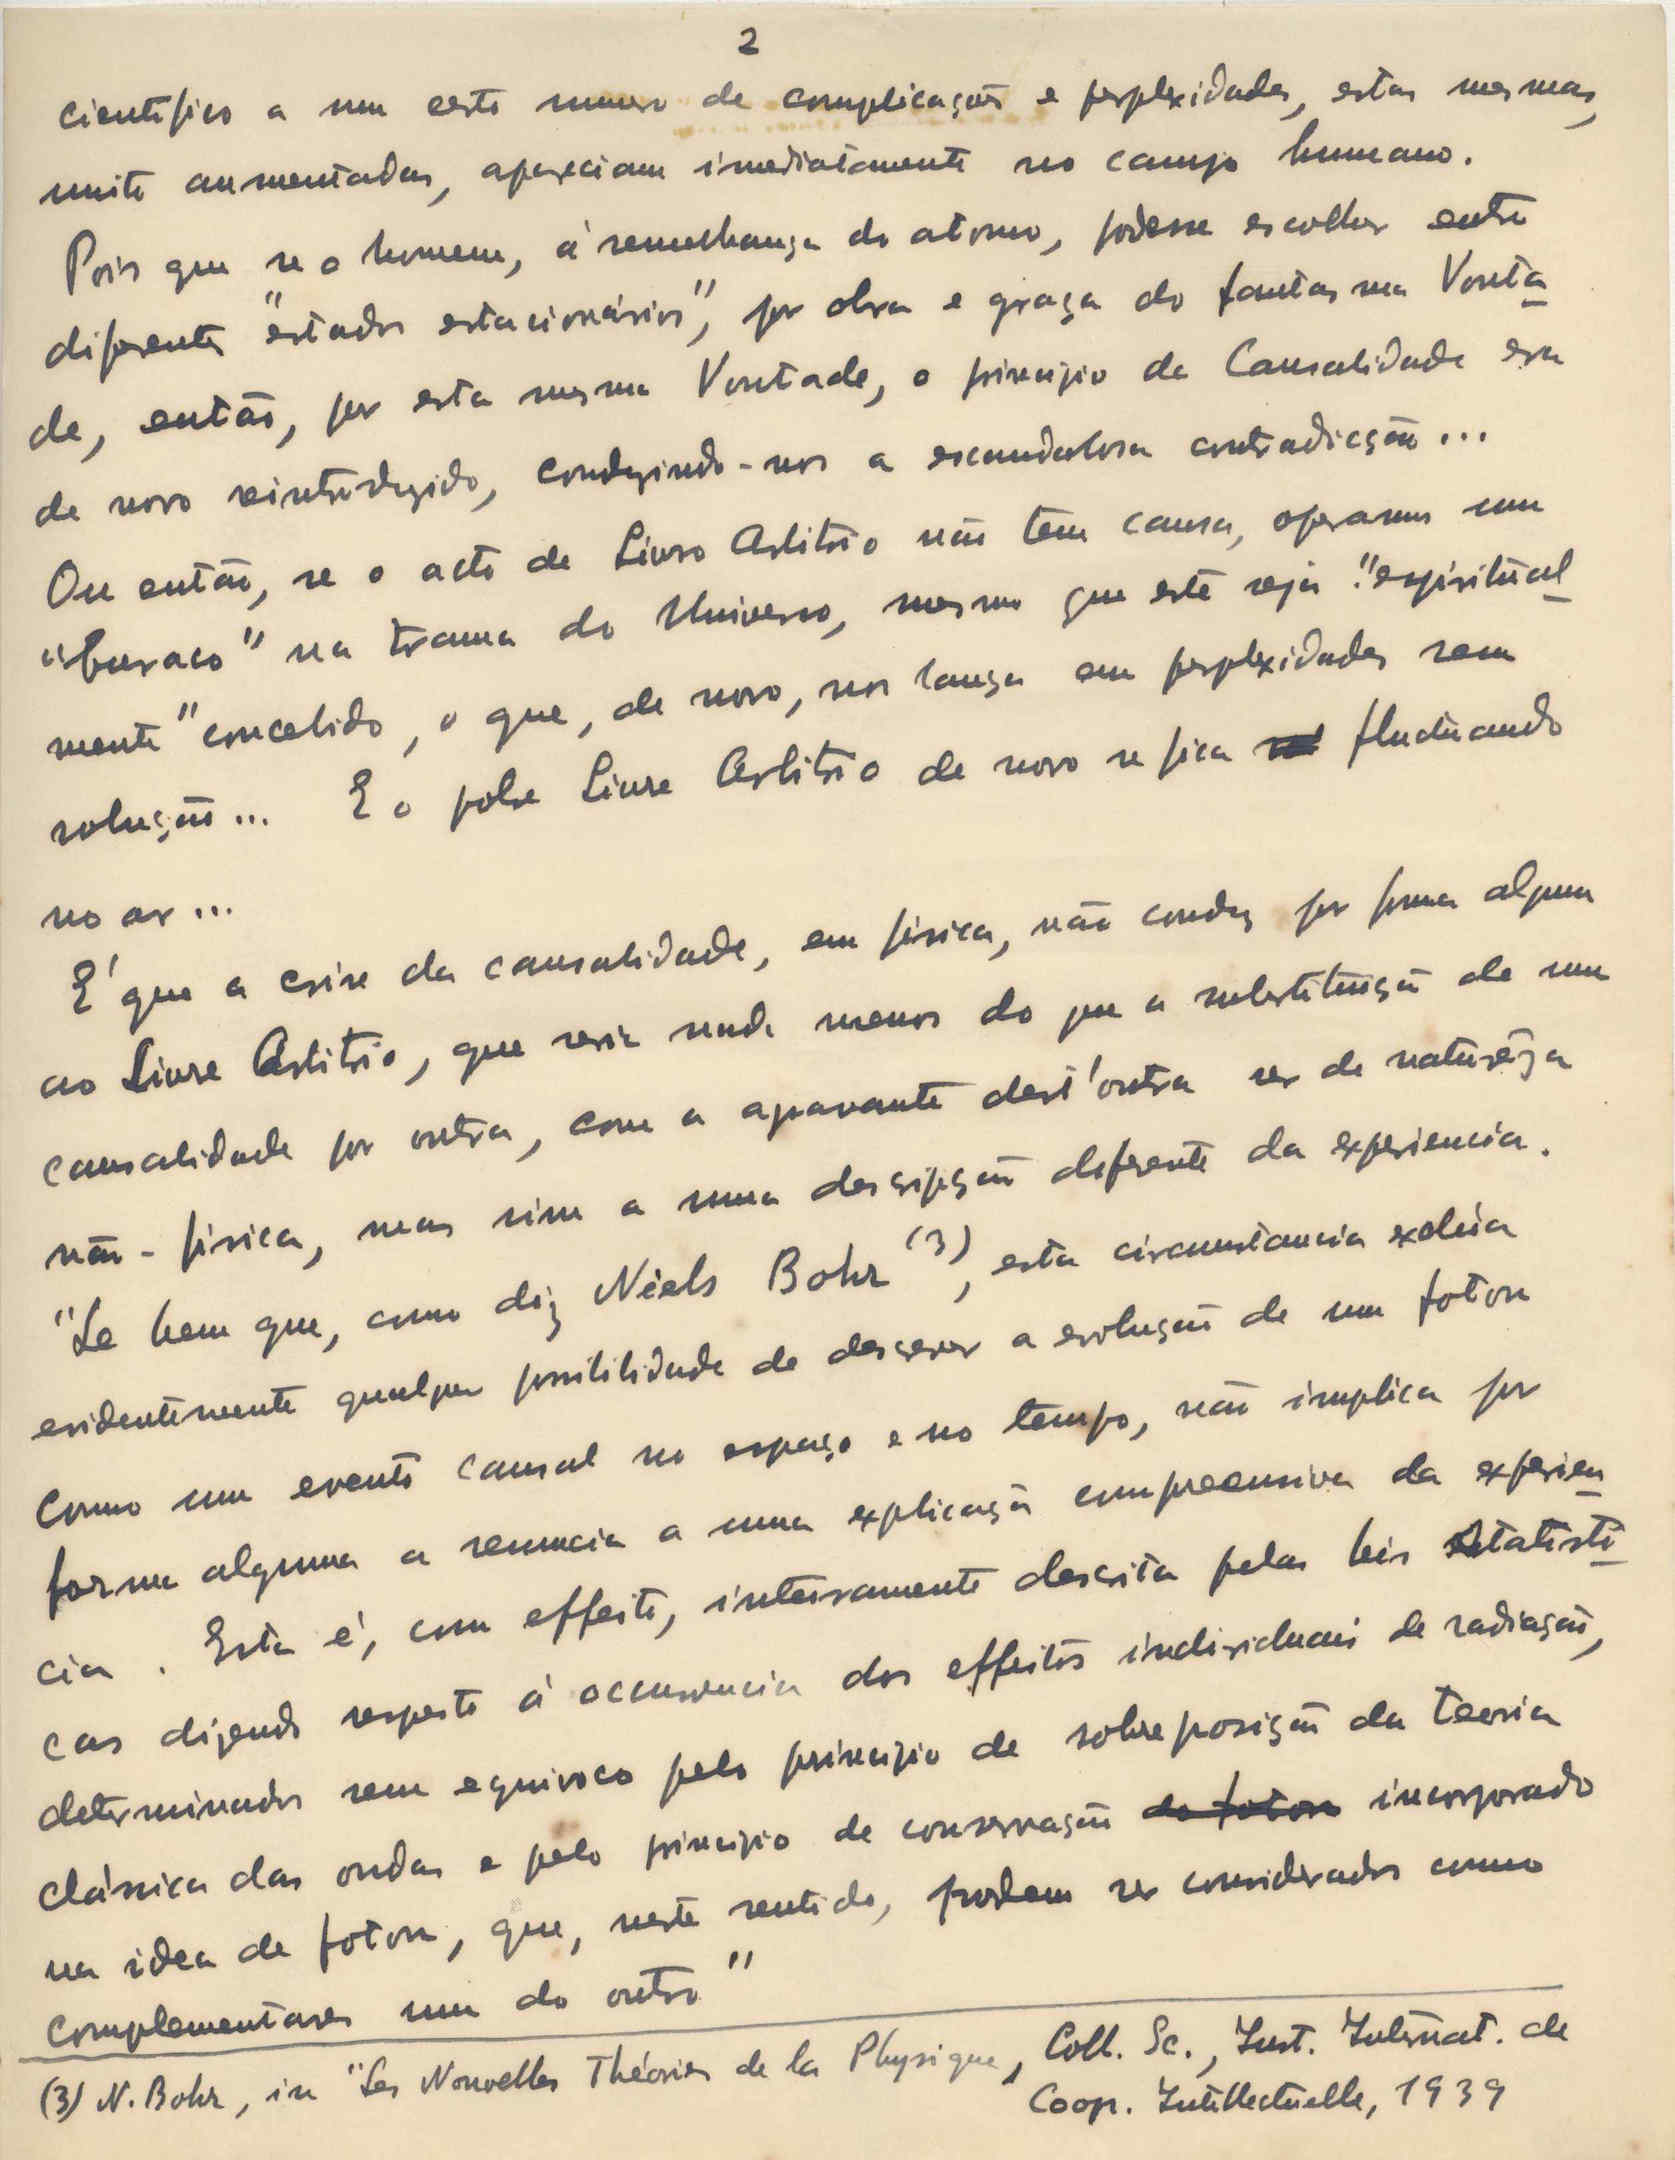 2
científico a um certo numero de complicações e perplexidades, estas mesmas,
muito aumentadas, apareciam imediatamente no campo humano.
Pois que se o homem, á semelhança do atomo, podesse escolher entre
diferentes "estados estacionários", por obra e graça do fantasma Vonta
de, então, por esta mesma Vontade, o principio de Causalidade era
de novo reintroduzido, conduzindo-nos a escandalosa contradicção...
Ou então, se o acto de Livre Arbitrio não tem causa, operamos um
"buraco" na trama do Universo, mesmo que este seja "espiritual
mente" concebido, o que, de novo, nos lança em perplexidades sem
solução... E o pobre Livre Arbitrio de novo se fica fluctuando
no ar...
É que a crise da causalidade, em física, não conduz por forma alguma
ao Livre Arbitrio, que seria nada menos do que a substituição de uma
causalidade por outra, com a agravante dest'outra ser de naturêza
não-física, mas sim a uma descripção diferente da experiencia.
"Se bem que, como diz Niels Bohr (3), esta circumstancia exclúa
evidentemente qualquer possibilidade de descrever a evolução de um foton
como um evento causal no espaço e no tempo, não implica por
forma alguma a renuncia a uma explicação compreensiva da experien
cia. Esta é, com effeito, inteiramente descrita pelas leis statisti
cas dizendo respeito á occurrencia dos effeitos individuais de radiação,
determinados sem equivoco pelo principio de sobreposição da teoria
clássica das ondas e pelo principio de conservação do foton incorporado
na idea de foton, que, neste sentido, podem ser considerados como
complementares um do outro"
(3) N. Bohr, in "Les Nouvelles Théories de la Physique, Coll. Sc., Inst. Internat. de
Coop. Intellectuelle, 1939